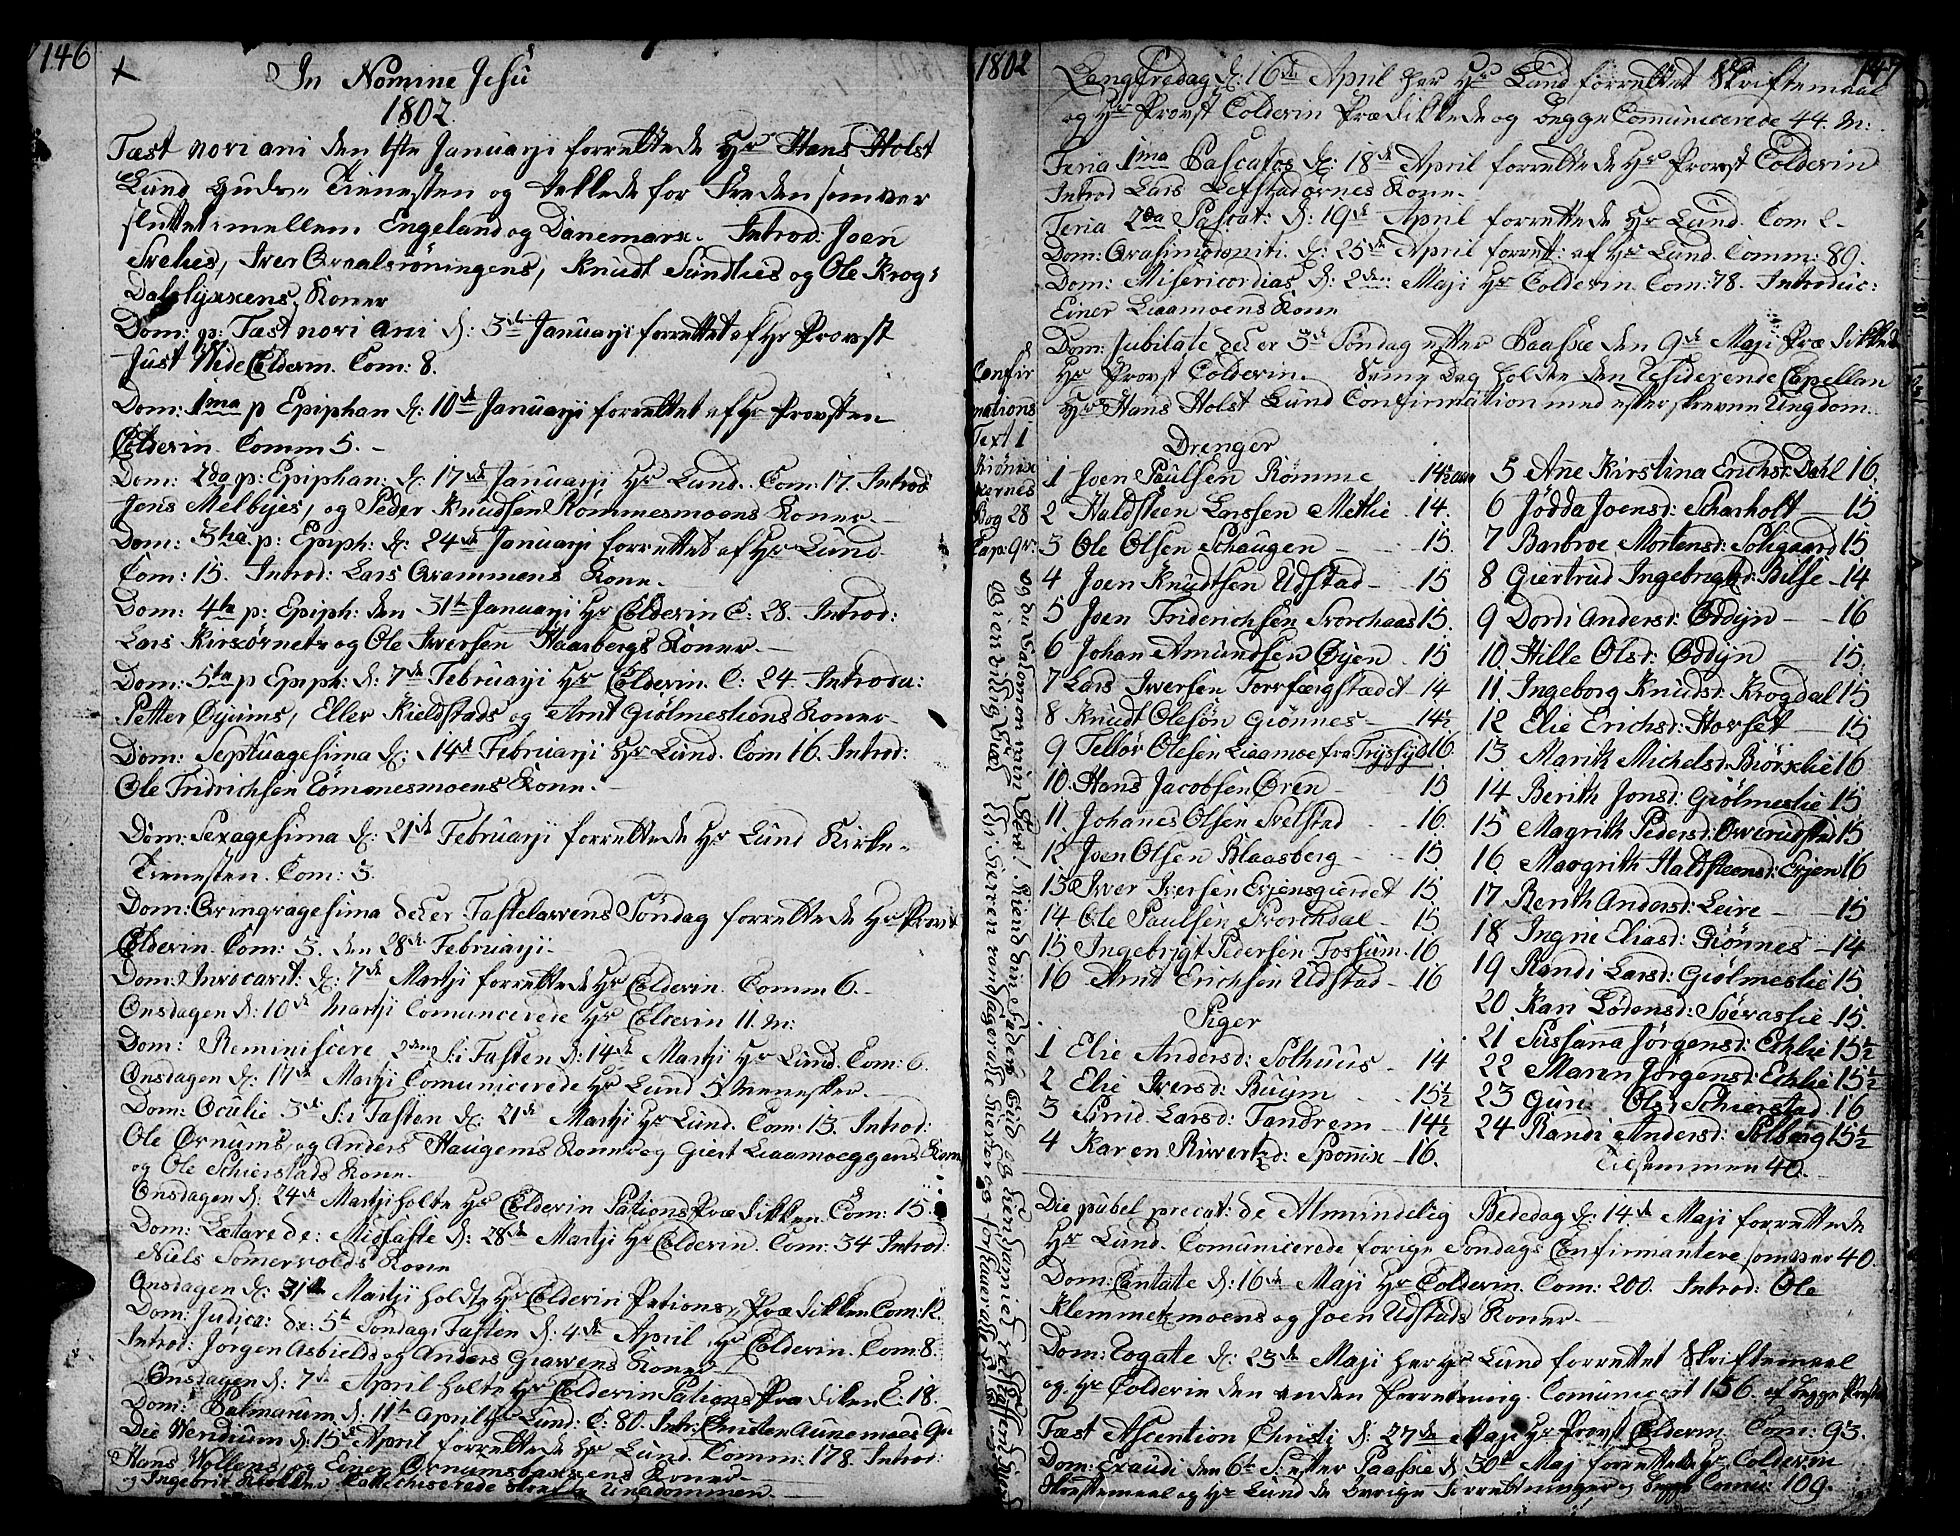 146
In Nomine Jesu
1802.
Fæst novi ani den 1ste Januarji forrettede Hr Hans Holst
Lund Guds Tienesten og takkede for Freden som var
sluttet imellem Engeland og Danemark. Introd: Joen
Svelies, Iver Qvaalsrøningens, Knudt Sundlies og Ole Krog-
Dalslyxxens Koner
Dom: p: Fæst novi ani d: 3de Januarji forrettet af Hr Provst
Just Wide Colderin. Com: 8.
Dom: 1ma p Epiphan d: 10de Januarji forrettet af Hr Provsten
Colderin. Comm 5.
Dom: 2da p: Epiphan: d: 17de Januarji Hr Lund. Com: 17. Introd
Jens Melbyes, og Peder Knudsen Rømmesmoens Koner
Dom: 3tia p: Epiph: d: 24de Januarji forrettet af Hr Lund
Com: 15. Introd: Lars Qvammens Kone.
Dom: 4ta p: Epiph: den 31te Januarji Hr Colderin C: 28. Introd:
Lars og Ole Iversen Haarbergs Koner.
Dom: 5ta p Epiph: d: 7de Februarji Hr Colderin. C: 24. Introdu:
Petter Øyums, Eller Kieldstads og Arnt Giølmesliens Koner
Dom: Septuagesima d: 14de Februarji Hr Lund. Com 16. Introd:
Ole Fridrichsen Tømmesmoens Kone.
Dom: Sexagesima d: 21de Februarji forrettede Hr Lund Kirke-
Tienesten. Com: 3.
Dom: Qvinqvagesima det er Fastelavens Søndag forrettede Hr Provst
Colderin. Com: 3. den 28de Februarji
Dom: Invocavit: d: 7de Martji forrettede Hr Colderin. Comm 6.
Onsdagen d: 10de Martji Comuncerede Hr Colderin 11. M:
Dom: Reminiscere 2den S: i Fasten d: 14de Martji Hr Lund. Com: 6.
Onsdagen d: 17de Martji Comunicerede Hr Lund 5 Mennesker.
Dom: Oculie 3de S: i Fasten d: 21de Martji Hr Lund. Com: 13. Introd:
Ole Ørnums, og Anders Haugems Koner og Giert Liaamoeggens Kone
og Ole Schierstads Kone.
Onsdagen d: 24de Martji holte Hr Colderin Pations Prædikken. Com: 15
Dom: Lætare de: Midfaste d: 28de Martji Hr Colderin. Com: 34 Introd:
Niels Somervolds Kone
Onsdagen d: 31de Martji holdte Hr Colderin Pations Prædikken Com: 12.
Dom: Judica: de: 5te Søndag i Fasten d: 4de April Hr Colderin. Com: 8.
Introd: Jørgen Asbields og Anders Grawens Koner
Onsdagen d: 7de April holte Hr Colderin Pations Prædiken C: 18.
Dom: Palmarum d: 11te April Hr Lund: C: 80. Intr: Christen Aunemoes
Die Viridium d: 15de April forrettede Hr Lund. Comm: 178. Introd:
Hans Wollens, og Einer Koner
og Ingebrit Kattechiserede Ungdommen.
1802
147
Langfredag d: 16de April har Hr Lund forrettet Skriftemaal
og Hr Provst Colderin Prædikkede og begge Comunicerede 44. M:
Feria 1ma Pascatos d: 18de April forrettede Hr Provst Colderin
Introd Lars Kone.
Feria 2da Pascat: d: 19de April forrettede Hr Lund. Com 2.
Dom: Qvasimodoniti. d: 25de April forrett: af Hr Lund. Comm: 89.
Dom: Misericordias d: 2den Maji Hr Colderin. Com: 78. Introduc:
Einer Liaamoens Kone
Dom: Jubilate det er 3de Søndag efter Paaske den 9de Maji Prædikkede
Hr Provst Colderin. Samme Dag holdte den Residerende Capellan
Hr Hans Holst Lund Confirmation med efterskrevne Ungdom.
Confir
mations
Text 1
Krønix
kernes
Bog 28
Cap: 9 v:
og du Salomon min Søn! kiend din Faders Gud og tien ham med et retsaffen Hierte
og en villig Siæl thi Herren randsager alle Hierter og forstaaer alle
Drenger
1 Joen Paulsen Rømme 14½ aar
2 Haldsteen Larssen Metlie 14.
3 Ole Olsen Schaugen 15.
4 Joen Knudtsen Udstad 15
5 Joen Friderichsen Svorchaas 15.
6 Johan Amundsen Øyen 15
7 Lars Iversen Torsfærgstædet 14
8 Knudt Olesøn Giønnes 14½
9 Tellør Olesen Liaamoe fra Trysfyld 16.
10. Hans Jacobsen Øren 15
11. Johanes Olsen Svelstad 16.
12 Joen Olsen Blaasberg 15
13 Iver Iversen Evjensgierdet 15
14 Ole Paulsen Svorchdal 15
15 Ingebrigt Pedersen Fossum 16
16 Arnt Erichsen Udstad 16
Piger
1 Elie Andersd: Solhuus 14
2 Elie Iversd: Buum 15½
3 Sirid Larsd: Tandrem 14½
4 Karen Siwertsd: Sponix 16.
5 Ane Kirstina Erichsd: Dahl 16.
6 Jødda Joensd: Scharholt 15
7 Barbroe Mortensd: Soligaard 15
8 Giertrud Ingebrigtsd: Bilse 14
9 Dordi Andersd: Oddyn 16
10. Hille Olsd: Oddyn 15.
11. Ingeborg Knudsd: Krogdal 15
12 Elie Erichsd: Horset 15
13 Marik Michelsd: Biørklie 16
14 Berith Jonsd: Giølmeslie 15
15 Magrith Pedersd: 15
16 Maogrith Haldsteensd: Evjen 16
17 Berith Andersd: Leire 15
18 Ingne Eliasd: Giønnes 14
19 Randi Larsd: Giølmeslie 15
20 Kari Lødensd: Søeraslie 15.
21 Sussana Jørgensd: Echlie 15½
22 Maren Jørgensd: Echlie 15½
23 Guri Olsd: Schierstad 16
24 Randi Andersd: Solberg 15½
Tilsammen 40.
Die pubel precat: de Almindelig Bededag d: 14de Maji forrettede
Hr Lund. Comunicerede forige Søndags Confirmantere som var 40.
Dom: Cantate d: 16de Maji Hr Colderin. Com: 200. Introd: Ole
Klemmetsmoens og Joen Udstads Koner.
Dom: Rogate d: 23de Maji har Hr Lund forrettet Skriftemaal
og Hr Colderin den anden forretning. Comunicert 156. af begge Præster
Fæst Ascention Christi d: 27de Maji Hr Provst Colderin Com: 93.
Dom: Exaudi den 6te S: efter Paaske d: 30te Maj forrettede Hr Colderin
Skriftemaal og Hr Lund de øvrige Forretninger og begge Comu: 109.